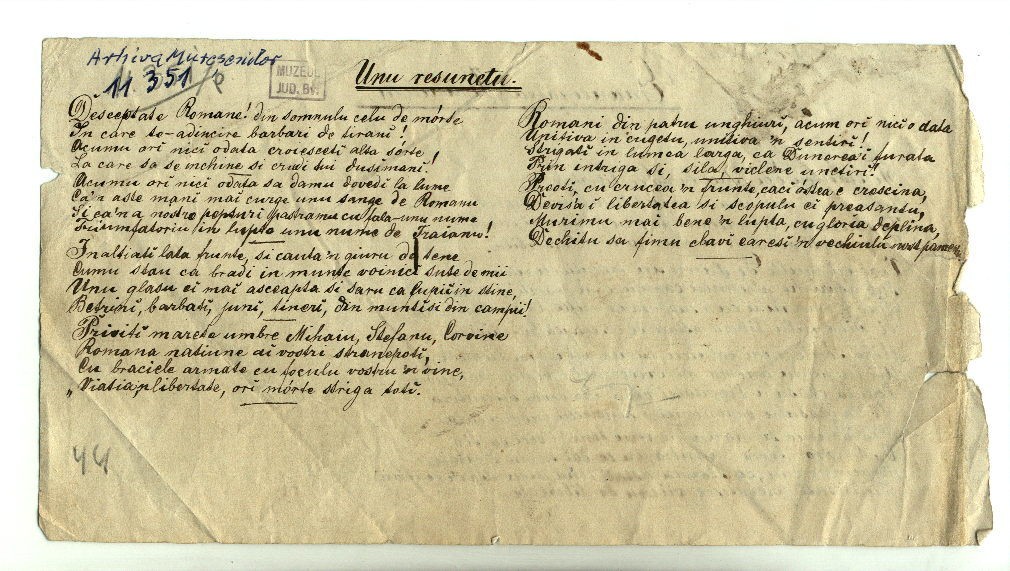 Arhiva Muresenilor
11.351
MUZEUL
JUD. BV.
Unu resunetu.
Desceptate Romane! din somnulu celu de mórte
In care te-adincire barbari de tirani!
Acumu ori nici odata croiesceti alta sórte!
La care sa se inchine si crudi tui dusimani!
Acumu ori nici odata sa damu dovedi la lume
Ca'n aste mani mai curge unu sange de Romanu
Si ca'n a nostre pepturi pastramu cu fala-unu nume
Triumfatoriu in lupte unu nume de Traianu!
Inaltiati lata frunte, si cauta 'n giuru de tene
Cumu stau ca bradi in munte voinici sute de mii
Unu glasu ei mai ascepta si saru ca lupii in stine,
Betrini, barbati, juni, tineri, din munti si din campii!
Priviti marete umbre Mihaiu, Stefanu, Corvine
Romana natiune ai vostri stranepoti,
Cu braciele armate cu foculu vostru 'n vine,
"Viatia 'n libertate, ori mórte striga toti.
44
Romani din patru unghiuri, acum ori nici o data
Unitiva in cugetu, unitiva 'n sentiri!
Strigati in lumea larga, ca Dunarea-i furata
Prin intriga si, sila, viclene unctiri!
Preoti, cu crucea 'n frunte, caci óstea e crescina,
Devisa-i libertatea si scopulu ei preasantu,
Murimu mai bene 'n lupta, cu gloria deplina,
Dechitu sa fimu sclavi earesi 'n vechiulu nost